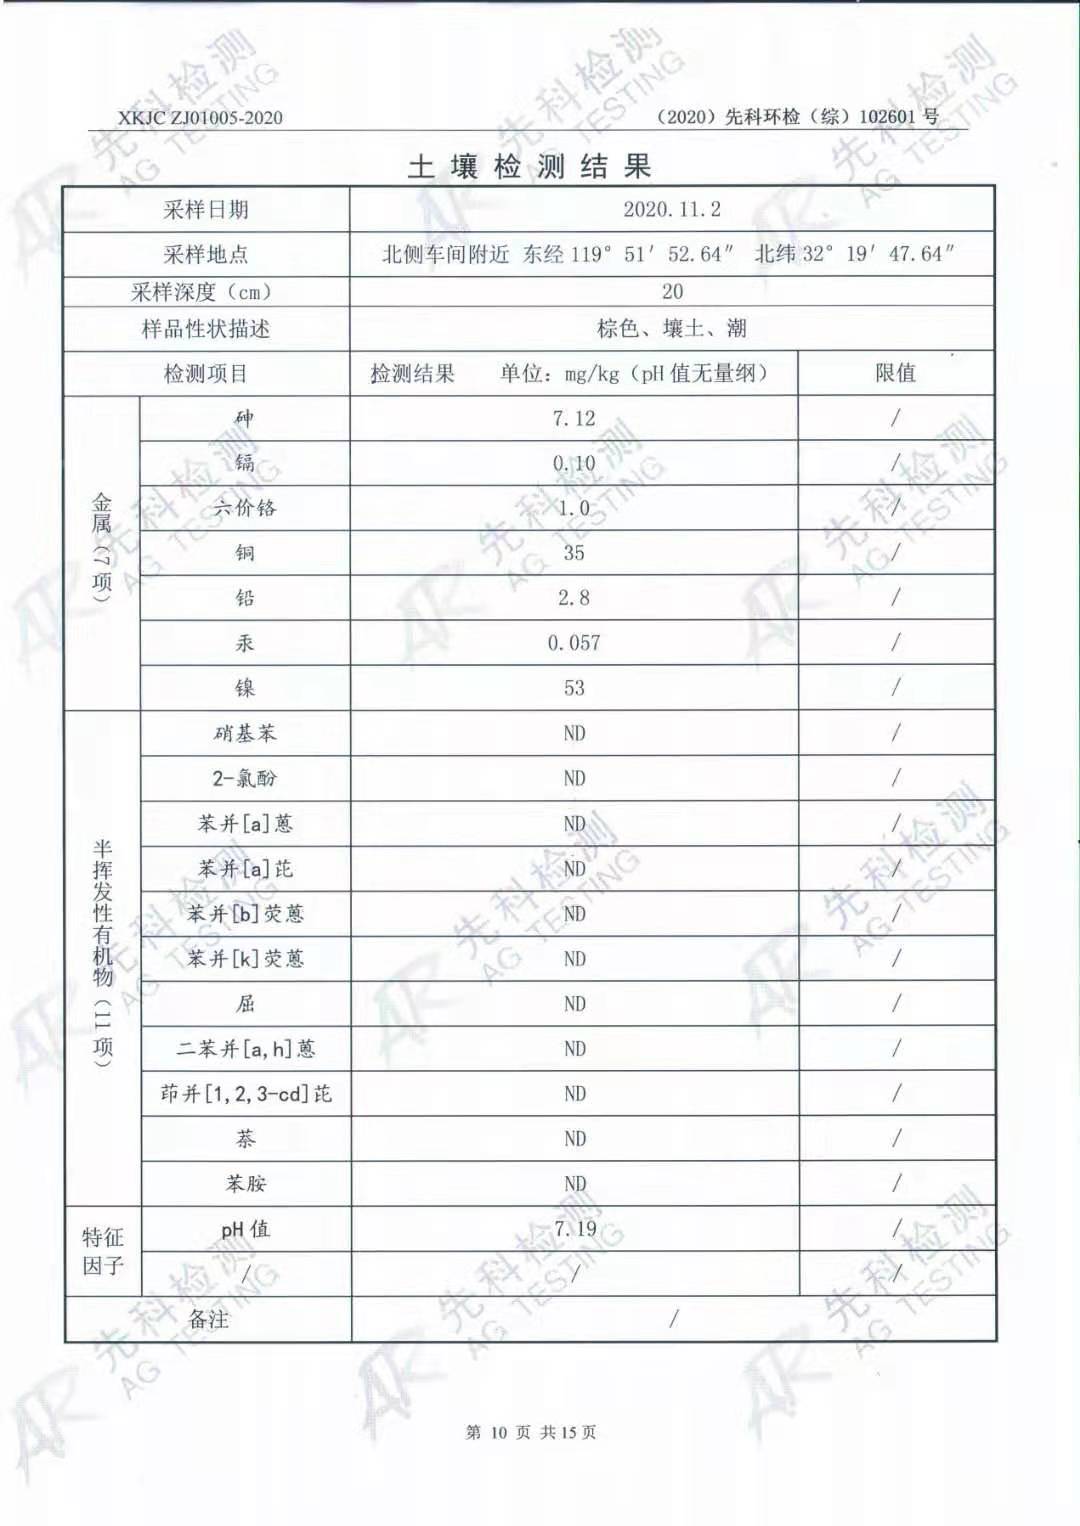 XKJC ZJ01005-2020 (2020)先科环检(综)102601号
土壤检测结果
采样日期 2020.11.2
采样地点 北侧车间附近 东经119°51′52.64″ 北纬32°19′47.64″
采样深度(cm) 20
样品性状描述 棕色、壤土、潮
检测项目 检测结果 单位:mg/kg(pH值无量纲) 限值
金属(7项)
砷 7.12 /
镉 0.10 /
六价铬 1.0 /
铜 35 /
铅 2.8 /
汞 0.057 /
镍 53 /
半挥发性有机物(11项)
硝基苯 ND /
2-氯酚 ND /
苯并[a]蒽 ND /
苯并[a]芘 ND /
苯并[b]荧蒽 ND /
苯并[k]荧蒽 ND /
屈 ND /
二苯并[a,h]蒽 ND /
茚并[1,2,3-cd]芘 ND /
萘 ND /
苯胺 ND /
特征
因子
pH值 7.19 /
/ / /
备注 /
第 10 页 共15页
先科检测
AG TESTING